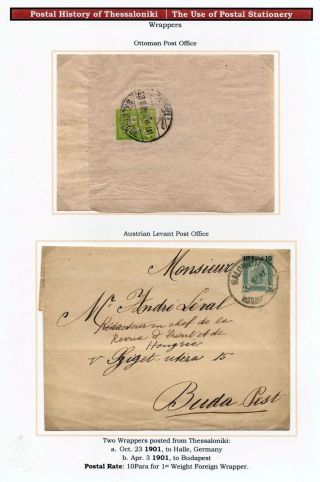 Postal History of Thessaloniki | The Use of Postal Stationery
Wrappers
Ottoman Post Office
Austrian Levant Post Office
10 PARA 10
Monsieur
Mr. André Léval
Rédacteur en chef de la
Revue d'Orient et de
Hongrie
Buda Pest
Two Wrappers posted from Thessaloniki:
a. Oct. 23 1901, to Halle, Germany
b. Apr. 3 1901, to Budapest
Postal Rate: 10Para for 1st Weight Foreign Wrapper.